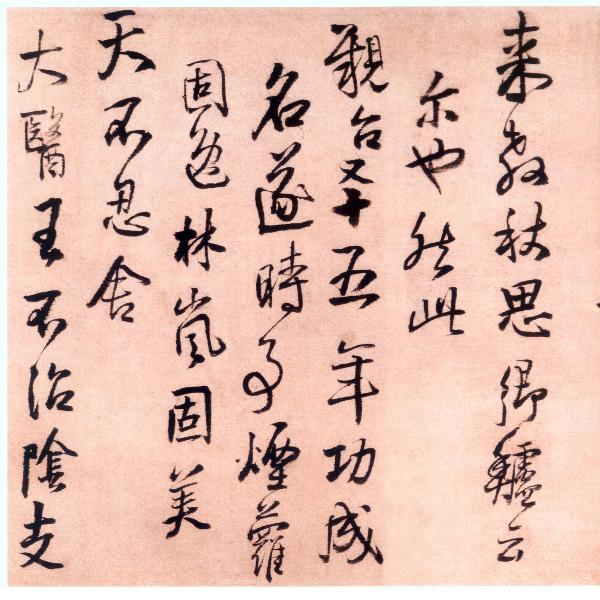 来教秋思卿鱸云
尔也然此
親台又辛五年功成
名遂時多煙蘿
固逸林嵐固美
天不忍舍
大醫王不治陰支